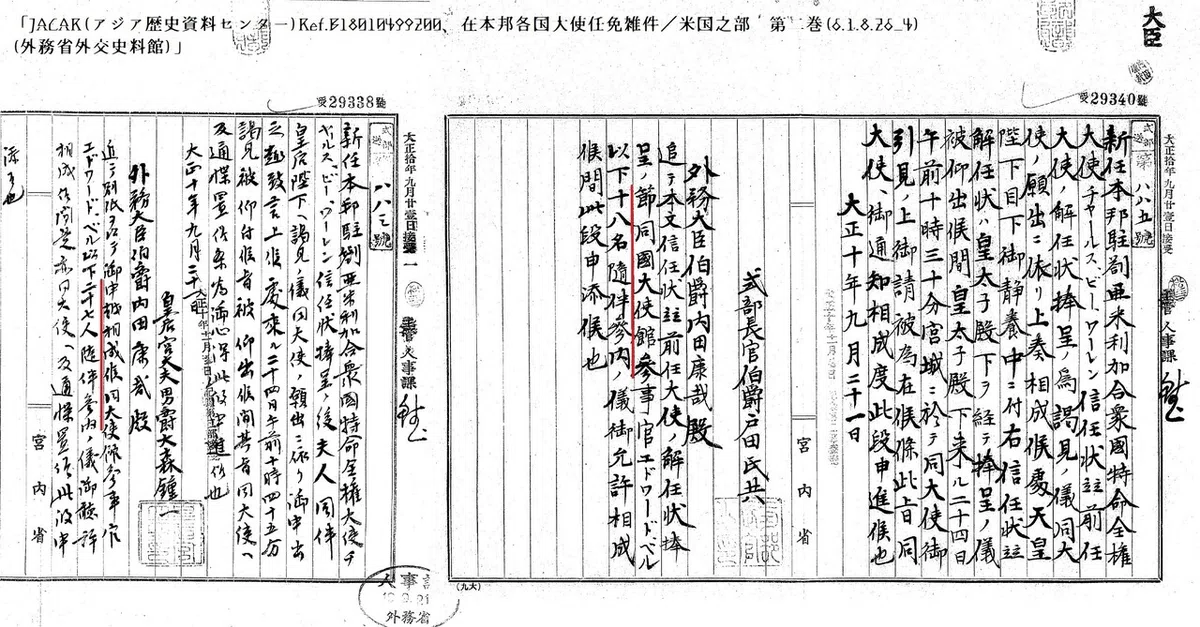 「JACAR(アジア歴史資料センター)Ref.B18010499200、在本邦各国大使任免雑件/米国之部 第二巻(6.1.8.26_4)
(外務省外交史料館)」
大臣
受29340號
大正拾年九月廿壹日接受
主管 人事課
式部 第八八五號
新任本邦駐剳亜米利加合衆國特命全権
大使チャールス、ビー、ワーレン信任状竝前任
大使ノ解任状捧呈ノ爲謁見ノ儀同大
使ノ願出ニ依リ上奏相成候處天皇
陛下目下御静養中ニ付右信任状竝
解任状ハ皇太子殿下ヲ経テ捧呈ノ儀
被仰出候間皇太子殿下来ル二十四日
午前十時三十分宮城ニ於テ同大使御
引見ノ上御請被為在候條此旨同
大使ヘ御通知相成度此段申進候也
大正十年九月二十一日
式部長官伯爵戸田氏共
外務大臣伯爵内田康哉殿
追テ本文信任状竝前任大使ノ解任状捧
呈ノ節同國大使館参事官エドワード、ベル
以下十八名随伴参内ノ儀御允許相成
候間此段申添候也
宮内省
(九大)
受29338號
大正拾年九月廿壹日接受
主管 人事課
八八三號
新任本邦駐剳亜米利加合衆國特命全権大使チ
ャールス、ビー、ワーレン信任状捧呈ノ後夫人同伴
皇后陛下ヘ謁見ノ儀同大使ノ願出ニ依リ御申出
之趣致言上候處來ル二十四日午前十時四十五分
謁見被仰付候旨被仰出候間其旨同大使ヘ
及通牒置候条為御心得此段申進候也
大正十年九月二十一日
皇后宮大夫男爵大森鍾一
外務大臣伯爵内田康哉殿
追テ別紙名ノ御申越相成候同大使館参事官
エドワード、ベル以下二十七人随伴参内ノ儀御聴許
相成候間是亦同大使ヘ及通牒置候此段申
添候也
宮内省
人事課
10.9.21
外務省